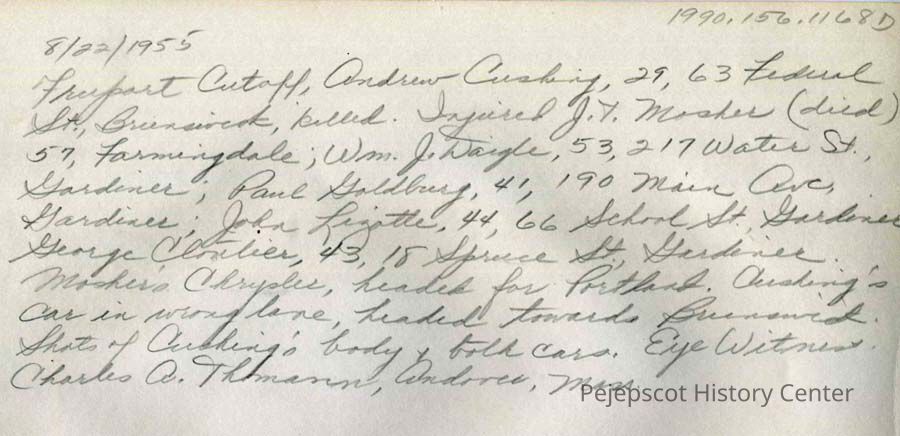 1990.156.1168D
8/22/1955
Freeport Cutoff, Andrew Cushing, 29, 63 Federal
St., Brunswick, killed. Injured J.T. Mosher (died)
57, Farmingdale; Wm. J. Daigle, 53, 217 Water St.,
Gardiner; Paul Goldburg, 41, 190 Main Ave,
Gardiner; John Lizotte, 44, 66 School St., Gardiner
George Cloutier, 43, 18 Spruce St., Gardiner.
Mosher's Chrysler, headed for Portland. Cushing's
car in wrong lane, headed towards Brunswick.
Shots of Cushing's body & both cars. Eye Witness.
Charles A. Thomann, Andover, Mass.
Pejepscot History Center